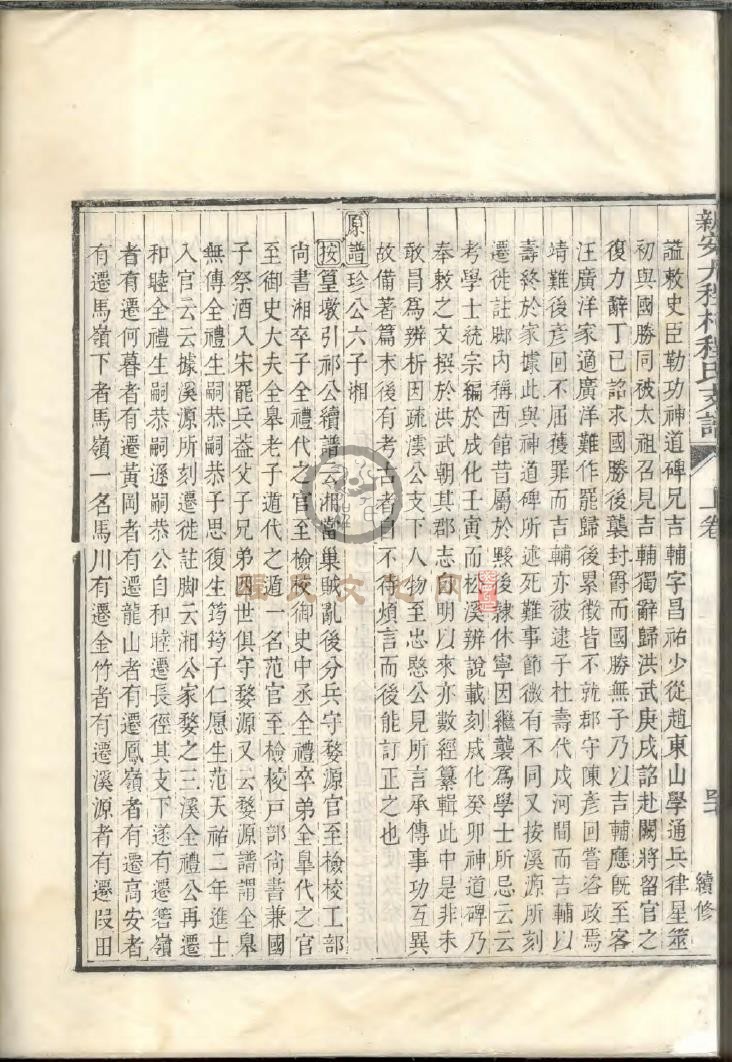 新安大程村程氏支譜
上卷
續修
謚敕史臣勒功神道碑兄吉輔字昌祐少從趙東山學通兵律星筮
初與國勝同被太祖召見吉輔獨辭歸洪武庚戌詔赴闕將留官之
復力辭丁巳詔求國勝後襲封爵而國勝無子乃以吉輔應既至客
汪廣洋家適廣洋難作罷歸後累徵皆不就郡守陳彥回嘗咨政焉
靖難後彥回不屈獲罪而吉輔亦被逮子杜壽代戍河間而吉輔以
壽終於家據此與神道碑所述死難事節微有不同又按溪源所刻
遷徙註脚內稱西館昔屬於黟後隸休寧因繼襲爲學士所忌云云
考學士統宗編於成化壬寅而松溪辨說載刻成化癸卯神道碑乃
奉敕之文撰於洪武朝其郡志自明以來亦數經纂輯此中是非未
敢冐爲辨析因疏澐公支下人物至忠愍公見所言承傳事功互異
故備著篇末後有考古者自不得煩言而後能訂正之也
原譜珍公六子湘
按篁墩引祁公續譜云湘當巢賊亂後分兵守婺源官至檢校工部
尚書湘卒子全禮代之官至檢校御史中丞全禮卒弟全臯代之官
至御史大夫全臯老子遒代之遒一名范官至檢校戶部尚書兼國
子祭酒入宋罷兵葢父子兄弟四世俱守婺源又云婺源譜謂全臯
無傳全禮生嗣恭嗣恭子思復生筠筠子仁愿生范天祐二年進士
入官云云據溪源所刻遷徙註脚云湘公家婺之三溪全禮公再遷
和睦全禮生嗣恭嗣遜嗣恭公自和睦遷長徑其支下遂有遷箬嶺
者有遷何暮者有遷黃岡者有遷龍山者有遷鳳嶺者有遷高安者
有遷馬嶺下者馬嶺一名馬川有遷金竹者有遷溪源者有遷段田